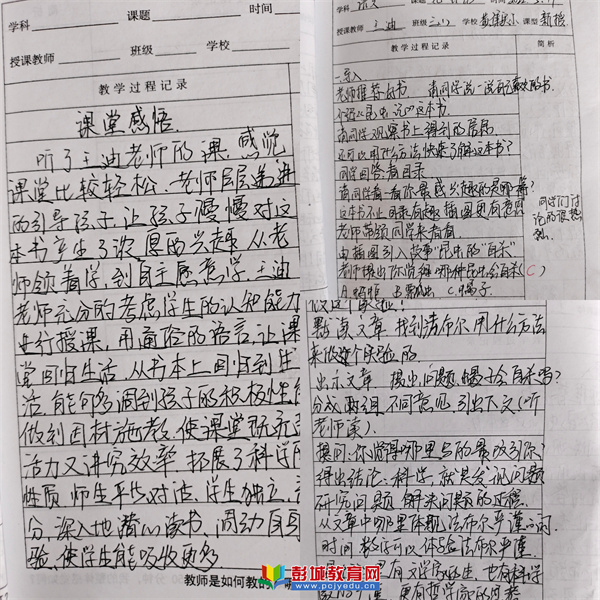 学科 课题 时间
授课教师 班级 学校
教学过程记录
课堂感悟
听了王迪老师的课,感觉
课堂比较轻松,老师层层递进
的引导孩子,让孩子慢慢对这
本书产生了浓厚的兴趣,从老
师领着学,到自主愿意学,王迪
老师充分的考虑学生的认知能力
进行授课,用通俗的语言,让课
堂回归生活,从书本上回归到生
活,能够调到孩子的积极性
做到因材施教,使课堂既
活力又讲究效率,拓展了科学
性质,师生平等对话,学生独立,
分,深入地潜心读书,调动自身
验,使学生能吸收更多
教师是如何教的
学科 课题 时间
授课教师 王迪 班级 学校 课型
教学过程记录 简析
一.导入
老师推荐好书 请同学说一说自己喜欢的书.
请同学观察书上得到的信息
还可以用什么方法快速了解这本书?
同学回答看目录
请同学看一看你最感兴趣的是哪篇?
这本书不止目录有趣 插图更有意思
老师带领同学来看看.
由插图引入故事“昆虫的“自杀”
老师提出你觉得哪种昆虫会自杀(C)
B.瓢虫 C.蝎子
同学们讨
论的很热
烈.
做这个实验?
默读文章 找到法布尔用什么方法
来做这个实验的.
出示文章 提出问题,蝎子会自杀吗?
分成两组不同意见,引出下文(听
老师读).
提问:你觉得哪里写的最吸引你?
得出结论:科学,就是发现问题
研究问题 解决问题的过程.
从文章中哪里体现法布尔严谨
时间 数字可以体会法布尔严谨.
彭城教育网